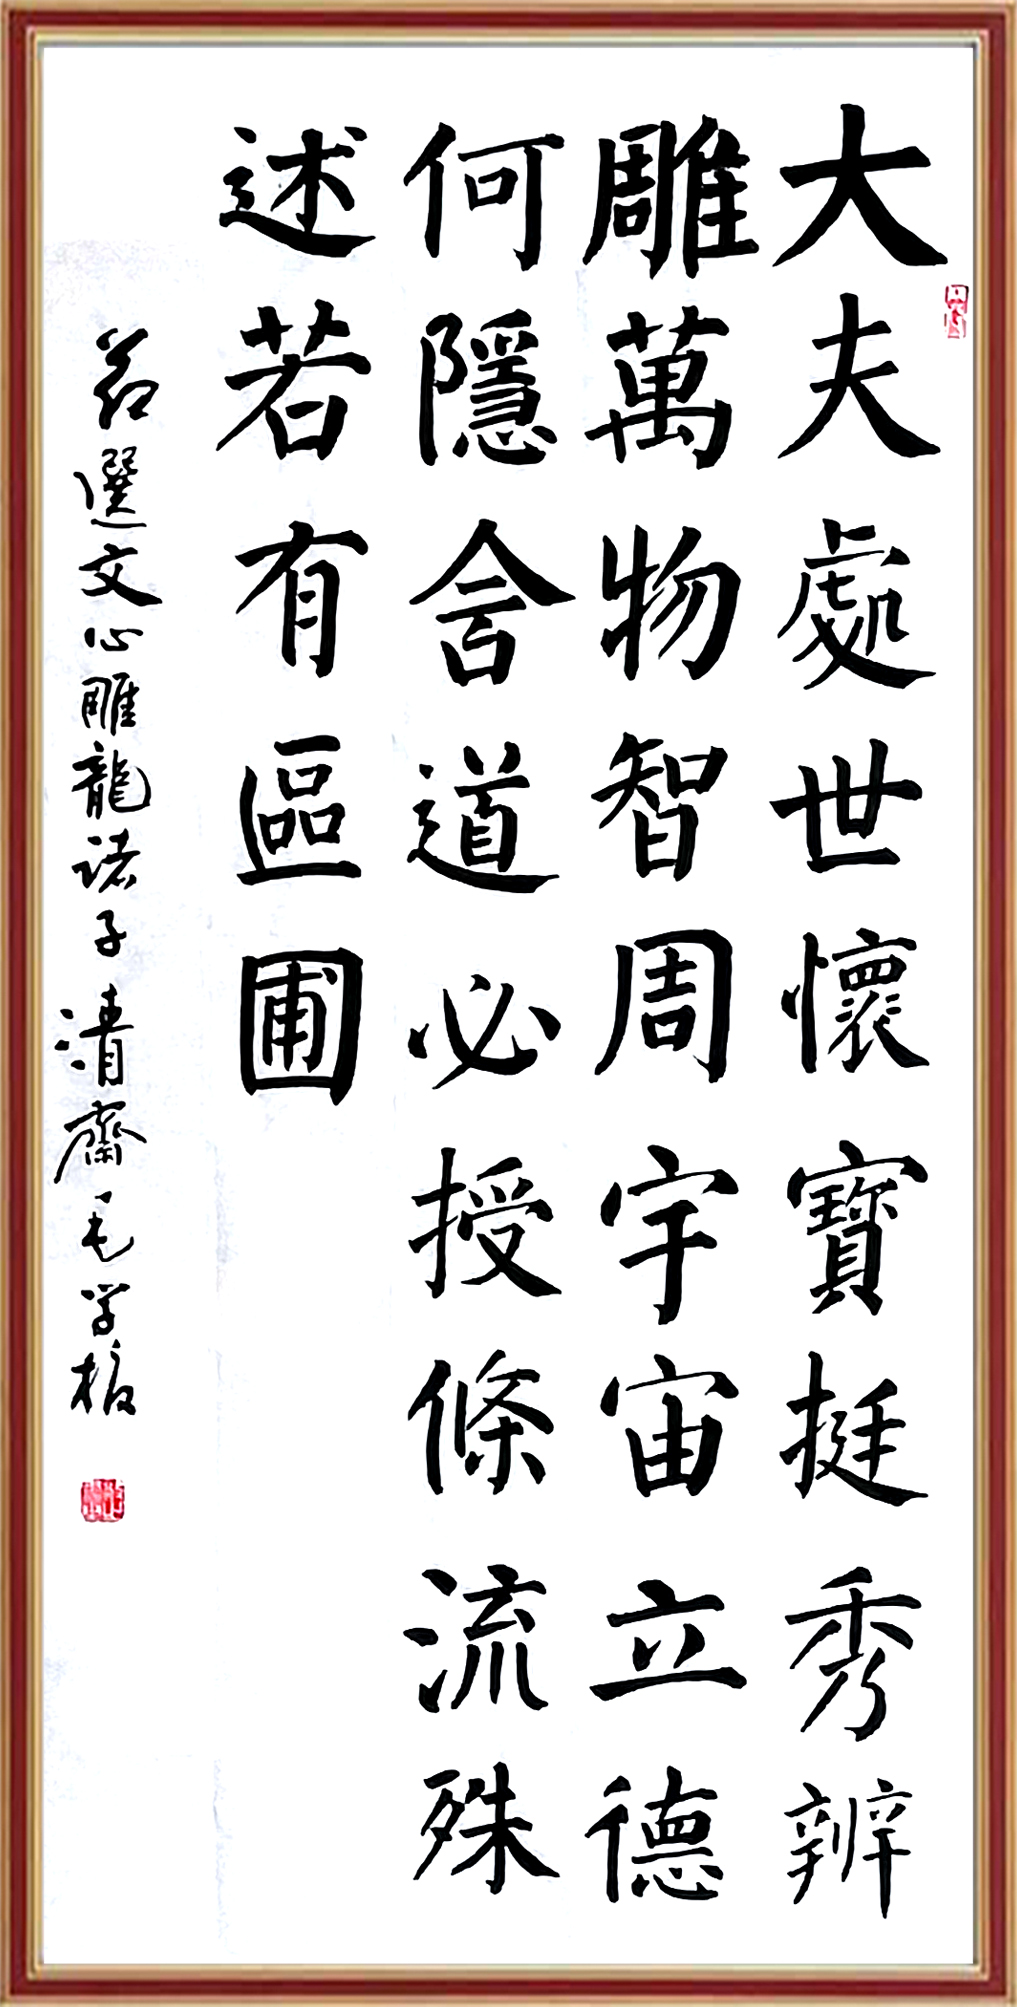 大夫處世懷寶挺秀辨
雕萬物智周宇宙立德
何隱舍道必授條流殊
述若有區圃
節選文心雕龍诸子清齋毛学